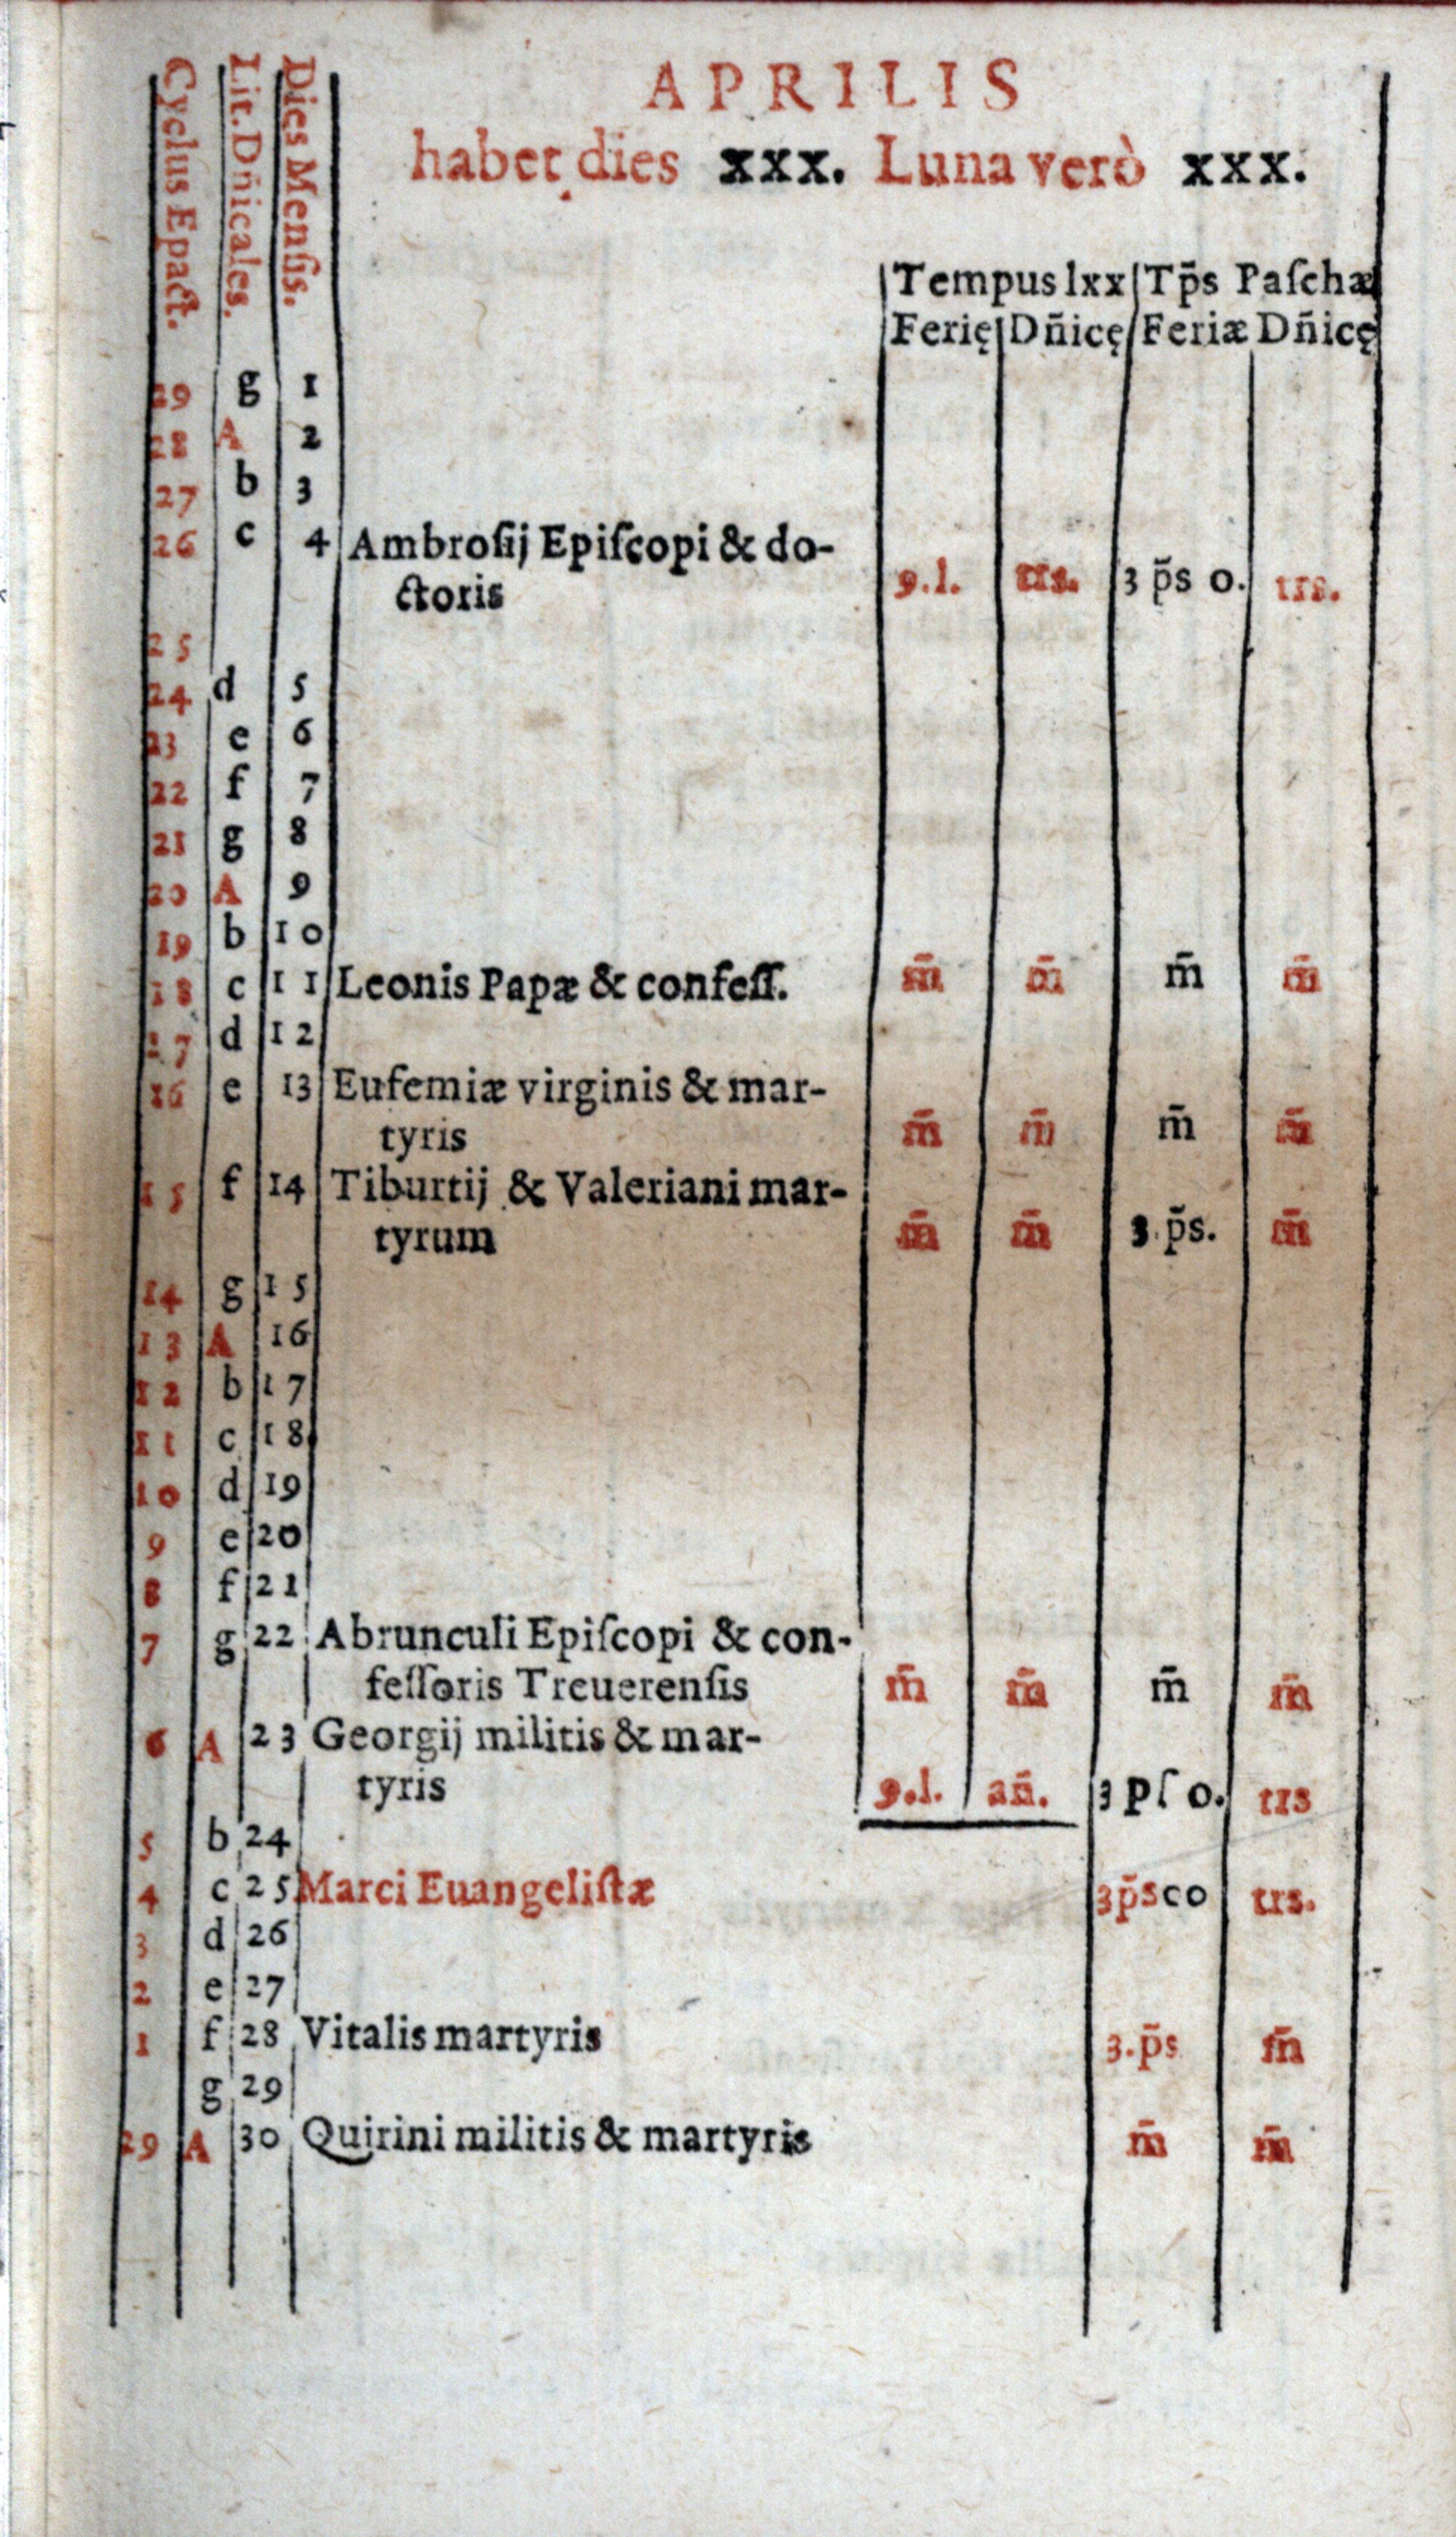 APRILIS
habet dies xxx. Luna verò xxx.
Cyclus Epact.
Lit. Dñicales.
Dies Menſis.
Tempus lxx Tp̄s Paſchæ
Ferię Dñicę Feriæ Dñicę
29 g 1
28 A 2
27 b 3
26 c 4 Ambroſij Epiſcopi & do-
ctoris 9.l. trs. 3 p̄s o. trs.
25
24 d 5
23 e 6
22 f 7
21 g 8
20 A 9
19 b 10
18 c 11 Leonis Papæ & confeſſ. m̄ m̄ m̄ m̄
17 d 12
16 e 13 Eufemiæ virginis & mar-
tyris m̄ m̄ m̄ m̄
15 f 14 Tiburtij & Valeriani mar-
tyrum m̄ m̄ 3.p̄s. m̄
14 g 15
13 A 16
12 b 17
11 c 18
10 d 19
9 e 20
8 f 21
7 g 22 Abrunculi Epiſcopi & con-
feſſoris Treuerenſis m̄ m̄ m̄ m̄
6 A 23 Georgij militis & mar-
tyris 9.l. añ. 3 pſ o. trs
5 b 24
4 c 25 Marci Euangeliſtæ 3p̄sco trs.
3 d 26
2 e 27
1 f 28 Vitalis martyris 3.p̄s m̄
g 29
29 A 30 Quirini militis & martyris m̄ m̄